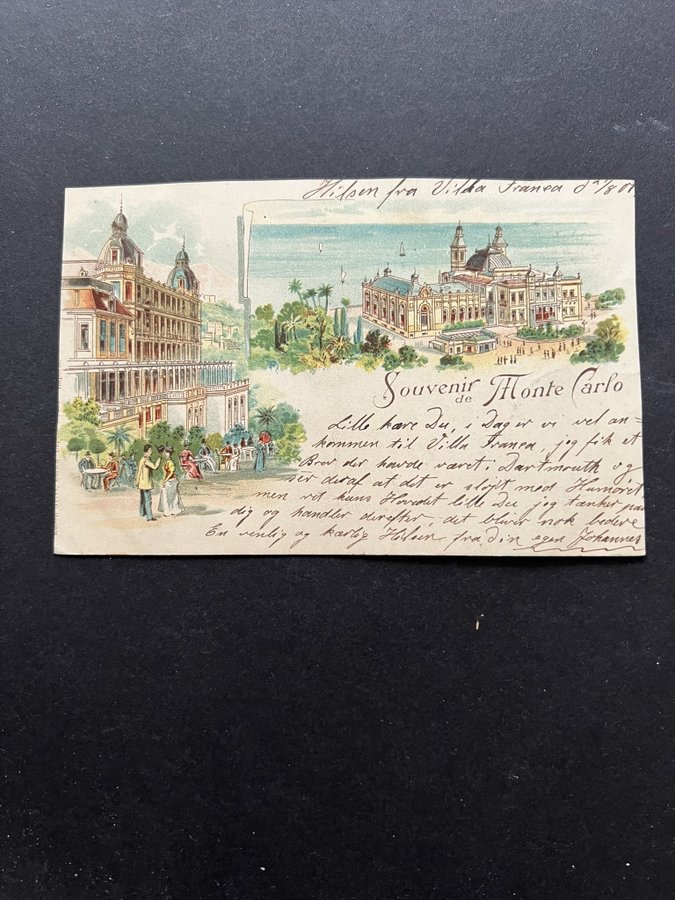 Hilsen fra Villa Franca d 2/8 01
Souvenir
de Monte Carlo
Lille kære Du, i Dag er vi vel an-
kommen til Villa Franca, jeg fik et
Brev der havde været i Dartmouth og
ser deraf at det er sløjt med Humøret
men ret kuns Hovedet lille Du, jeg tænker paa
dig og handler derefter, det bliver nok bedere
En venlig og kærlig Hilsen fra din egen Johannes